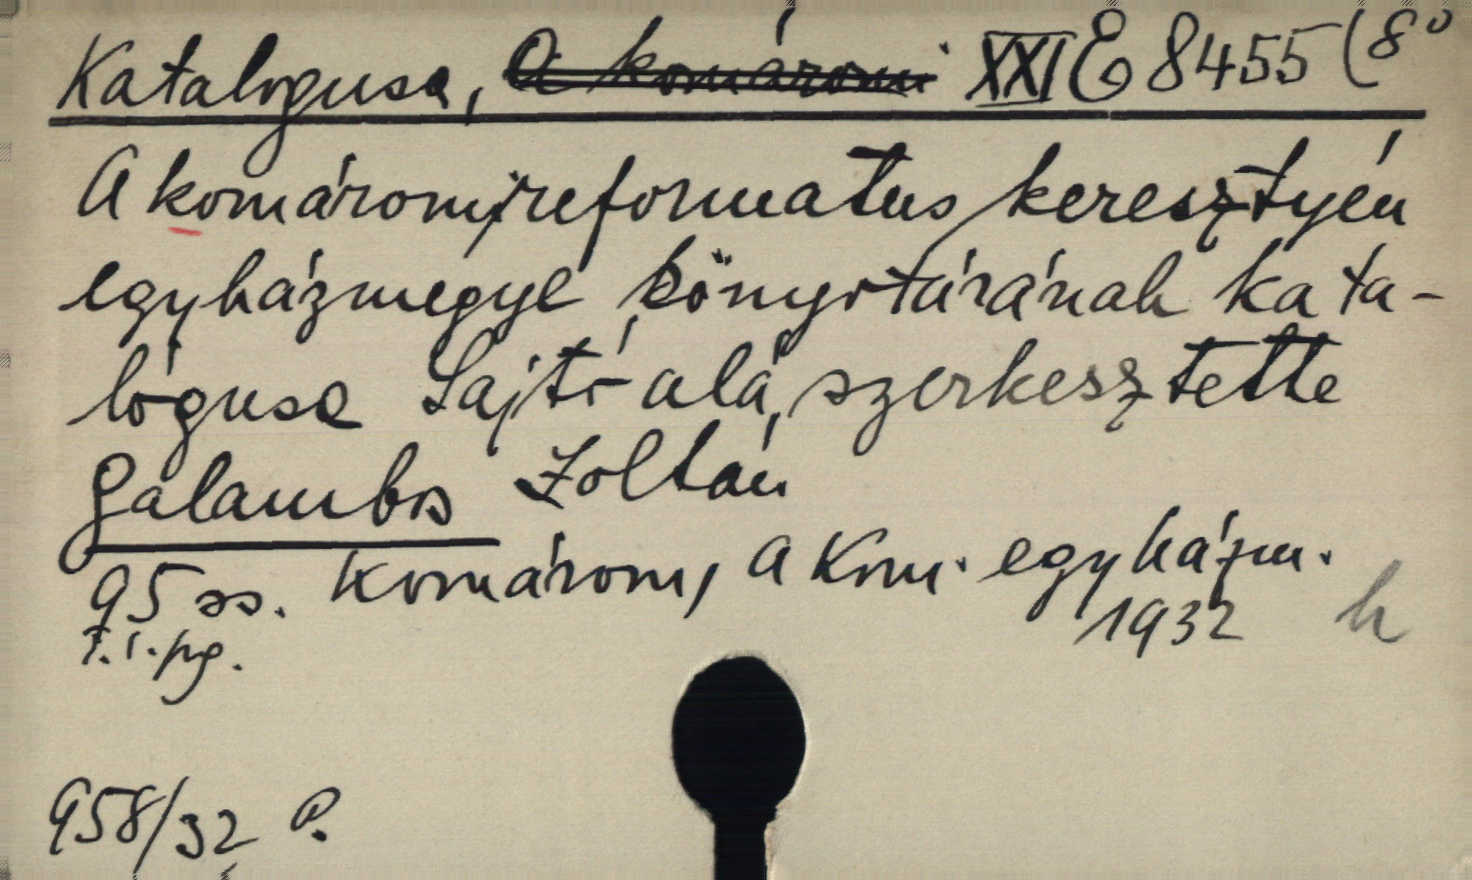 Katalogusa, a komáromi XXI E 8455 (8°
A komáromi református keresztyén
egyházmegye könyvtárának kata-
lógusa Sajtó alá szerkesztette
Galambos Zoltán
95 ss. Komárom, A Kom. egyházm.
1932 h
F. i. pg.
958/32 P.